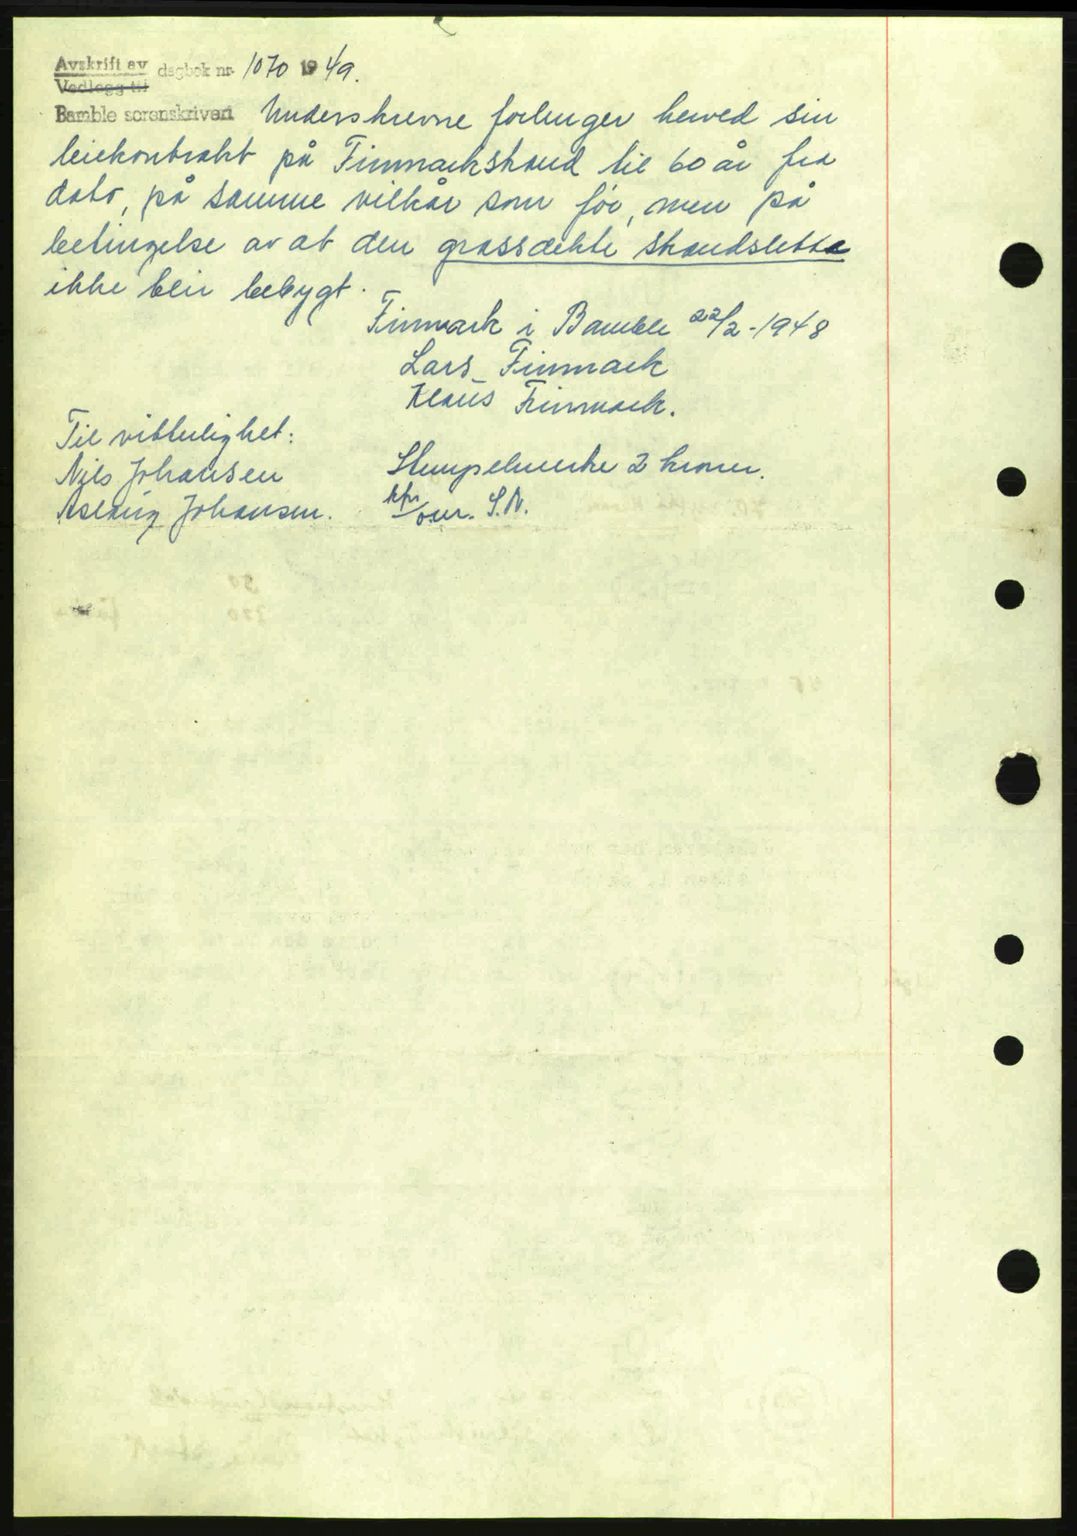 Avskrift av dagbok nr. 1070 1949.
Vedlegg til
Bamble sorenskriveri Underskrevne forlenger herved sin
leiekontrakt på Finmarkstrand til 60 år fra
dato, på samme vilkår som før, men på
betingelse av at den grassdekte strandsletta
ikke blir bebygt.
Finmark i Bamble 22/2-1948
Lars Finmark
Klaus Finmark.
Til vitterlighet:
Nils Johansen
Aslaug Johansen.
Stempelmerke 2 kroner.
S.N.